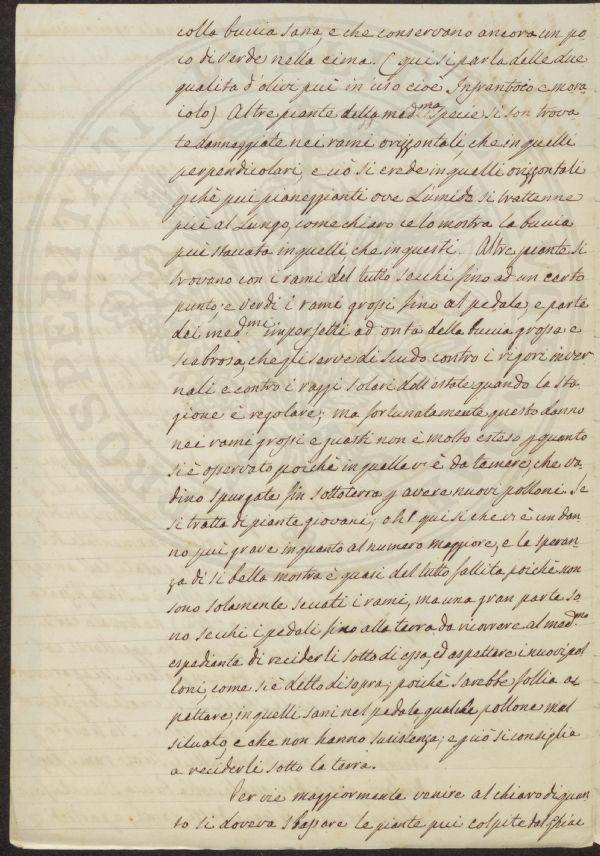 colla buccia sana, e che conservano ancora un po
co di verde nella cima. (qui si parla delle due
qualità d'olivi più in uso cioè Infrantoio e mora
iolo) Altre piante della med.ma specie si son trova
te danneggiate nei rami orizzontali, che in quelli
perpendicolari, e ciò si crede in quelli orizzontali
pchè più pianeggianti ove l'umido si trattenne
più al lungo, come chiaro ce lo mostra la buccia
più staccata in quelli, che in questi. Altre piante si
trovano con i rami del tutto secchi fino ad un certo
punto, e verdi i rami grossi fino al pedale, e parte
dei med.mi imperfetti ad onta della buccia grossa e
scabrosa, che gli serve di scudo contro i rigori inver
nali e contro i raggi solari dell'estate quando la sta
gione è regolare; ma fortunatamente questo danno
nei rami grossi e guasti non è molto esteso p quanto
si è osservato poichè in quella v'è da temere, che va
dino spurgate fin sottoterra p avere nuovi polloni. Se
si tratta di piante giovani; oh! qui si che vi è un dan
no più grave in quanto al numero maggiore, e la speran
za di si bella mostra è quasi del tutto fallita, poichè non
sono solamente seccati i rami, ma una gran parte so
no secchi i pedali fino alla terra da ricorrere al med.mo
espediente di reciderli sotto di essa, ed aspettare i nuovi pol
loni, come si è detto di sopra; poichè sarebbe follia as
pettare, in quelli sani nel pedale qualche pollone mal
situato, e che non hanno sussistenza; e p ciò si consiglia
a reciderli sotto la terra.
Per vie maggiormente venire al chiaro di quan
to si doveva sbassare le piante più colpite dal ghiac